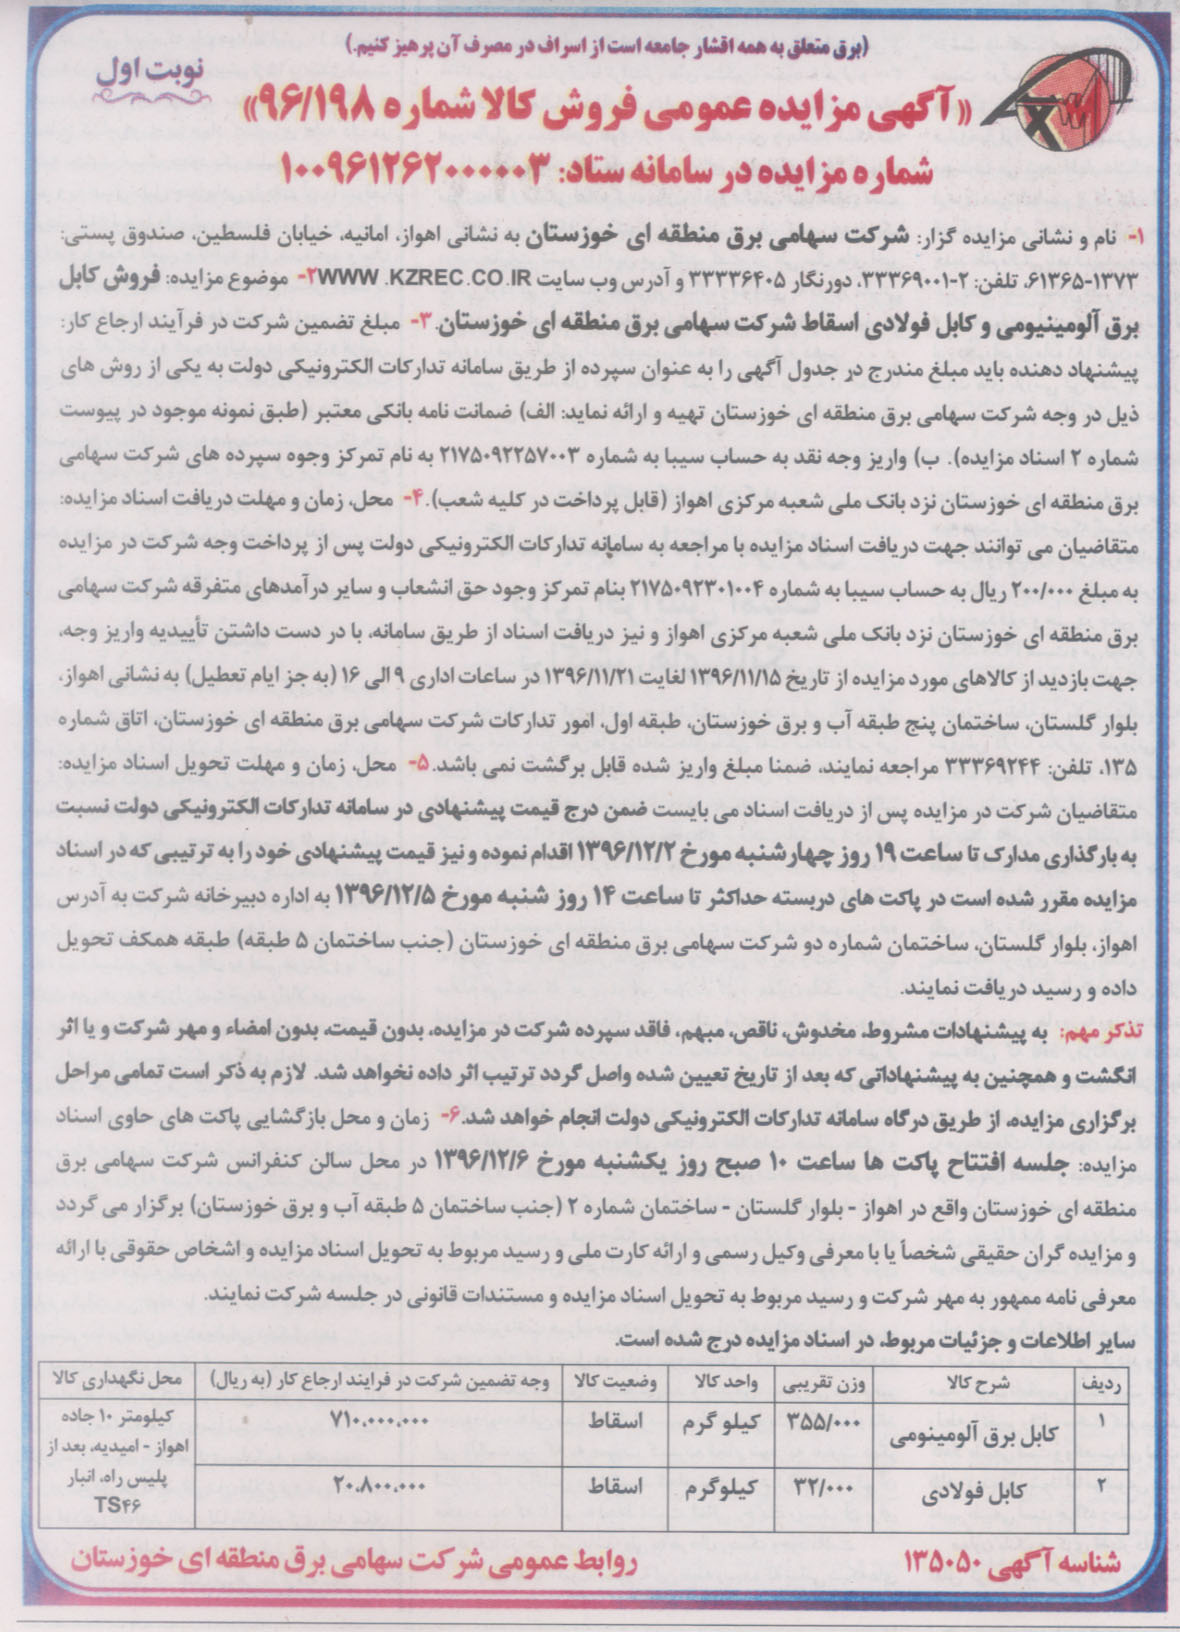 (برق متعلق به همه اقشار جامعه است از اسراف در مصرف آن پرهیز کنیم.)
نوبت اول
«آگهی مزایده عمومی فروش کالا شماره ۹۶/۱۹۸»
شماره مزایده در سامانه ستاد: ۱۰۰۹۶۱۲۶۲۰۰۰۰۰۳
۱- نام و نشانی مزایده گزار: شرکت سهامی برق منطقه ای خوزستان به نشانی اهواز، امانیه، خیابان فلسطین، صندوق پستی:
۶۱۳۶۵-۱۳۷۳، تلفن: ۲-۳۳۳۶۹۰۰۱، دورنگار ۳۳۳۳۶۴۰۵ و آدرس وب سایت WWW .KZREC.CO.IR ۲- موضوع مزایده: فروش کابل
برق آلومینیومی و کابل فولادی اسقاط شرکت سهامی برق منطقه ای خوزستان. ۳- مبلغ تضمین شرکت در فرآیند ارجاع کار:
پیشنهاد دهنده باید مبلغ مندرج در جدول آگهی را به عنوان سپرده از طریق سامانه تدارکات الکترونیکی دولت به یکی از روش های
ذیل در وجه شرکت سهامی برق منطقه ای خوزستان تهیه و ارائه نماید: الف) ضمانت نامه بانکی معتبر (طبق نمونه موجود در پیوست
شماره ۲ اسناد مزایده). ب) واریز وجه نقد به حساب سیبا به شماره ۲۱۷۵۰۹۲۲۵۷۰۰۳ به نام تمرکز وجوه سپرده های شرکت سهامی
برق منطقه ای خوزستان نزد بانک ملی شعبه مرکزی اهواز (قابل پرداخت در کلیه شعب). ۴- محل، زمان و مهلت دریافت اسناد مزایده:
متقاضیان می توانند جهت دریافت اسناد مزایده با مراجعه به سامانه تدارکات الکترونیکی دولت پس از پرداخت وجه شرکت در مزایده
به مبلغ ۲۰۰/۰۰۰ ریال به حساب سیبا به شماره ۲۱۷۵۰۹۲۳۰۱۰۰۴ بنام تمرکز وجود حق انشعاب و سایر درآمدهای متفرقه شرکت سهامی
برق منطقه ای خوزستان نزد بانک ملی شعبه مرکزی اهواز و نیز دریافت اسناد از طریق سامانه، با در دست داشتن تأییدیه واریز وجه،
جهت بازدید از کالاهای مورد مزایده از تاریخ ۱۳۹۶/۱۱/۱۵ لغایت ۱۳۹۶/۱۱/۲۱ در ساعات اداری ۹ الی ۱۶ (به جز ایام تعطیل) به نشانی اهواز،
بلوار گلستان، ساختمان پنج طبقه آب و برق خوزستان، طبقه اول، امور تدارکات شرکت سهامی برق منطقه ای خوزستان، اتاق شماره
۱۳۵، تلفن: ۳۳۳۶۹۲۴۴ مراجعه نمایند، ضمنا مبلغ واریز شده قابل برگشت نمی باشد. ۵- محل، زمان و مهلت تحویل اسناد مزایده:
متقاضیان شرکت در مزایده پس از دریافت اسناد می بایست ضمن درج قیمت پیشنهادی در سامانه تدارکات الکترونیکی دولت نسبت
به بارگذاری مدارک تا ساعت ۱۹ روز چهارشنبه مورخ ۱۳۹۶/۱۲/۲ اقدام نموده و نیز قیمت پیشنهادی خود را به ترتیبی که در اسناد
مزایده مقرر شده است در پاکت های دربسته حداکثر تا ساعت ۱۴ روز شنبه مورخ ۱۳۹۶/۱۲/۵ به اداره دبیرخانه شرکت به آدرس
اهواز، بلوار گلستان، ساختمان شماره دو شرکت سهامی برق منطقه ای خوزستان (جنب ساختمان ۵ طبقه) طبقه همکف تحویل
داده و رسید دریافت نمایند.
تذکر مهم: به پیشنهادات مشروط، مخدوش، ناقص، مبهم، فاقد سپرده شرکت در مزایده، بدون قیمت، بدون امضاء و مهر شرکت و یا اثر
انگشت و همچنین به پیشنهاداتی که بعد از تاریخ تعیین شده واصل گردد ترتیب اثر داده نخواهد شد. لازم به ذکر است تمامی مراحل
برگزاری مزایده، از طریق درگاه سامانه تدارکات الکترونیکی دولت انجام خواهد شد. ۶- زمان و محل بازگشایی پاکت های حاوی اسناد
مزایده: جلسه افتتاح پاکت ها ساعت ۱۰ صبح روز یکشنبه مورخ ۱۳۹۶/۱۲/۶ در محل سالن کنفرانس شرکت سهامی برق
منطقه ای خوزستان واقع در اهواز - بلوار گلستان - ساختمان شماره ۲ (جنب ساختمان ۵ طبقه آب و برق خوزستان) برگزار می گردد
و مزایده گران حقیقی شخصاً یا با معرفی وکیل رسمی و ارائه کارت ملی و رسید مربوط به تحویل اسناد مزایده و اشخاص حقوقی با ارائه
معرفی نامه ممهور به مهر شرکت و رسید مربوط به تحویل اسناد مزایده و مستندات قانونی در جلسه شرکت نمایند.
سایر اطلاعات و جزئیات مربوط، در اسناد مزایده درج شده است.
ردیف شرح کالا وزن تقریبی واحد کالا وضعیت کالا وجه تضمین شرکت در فرایند ارجاع کار (به ریال) محل نگهداری کالا
۱ کابل برق آلومینومی ۳۵۵/۰۰۰ کیلو گرم اسقاط ۷۱۰.۰۰۰.۰۰۰
۲ کابل فولادی ۳۲/۰۰۰ کیلوگرم اسقاط ۲۰.۸۰۰.۰۰۰
کیلومتر ۱۰ جاده
اهواز - امیدیه، بعد از
پلیس راه، انبار
TS۴۶
شناسه آگهی ۱۳۵۰۵۰
روابط عمومی شرکت سهامی برق منطقه ای خوزستان